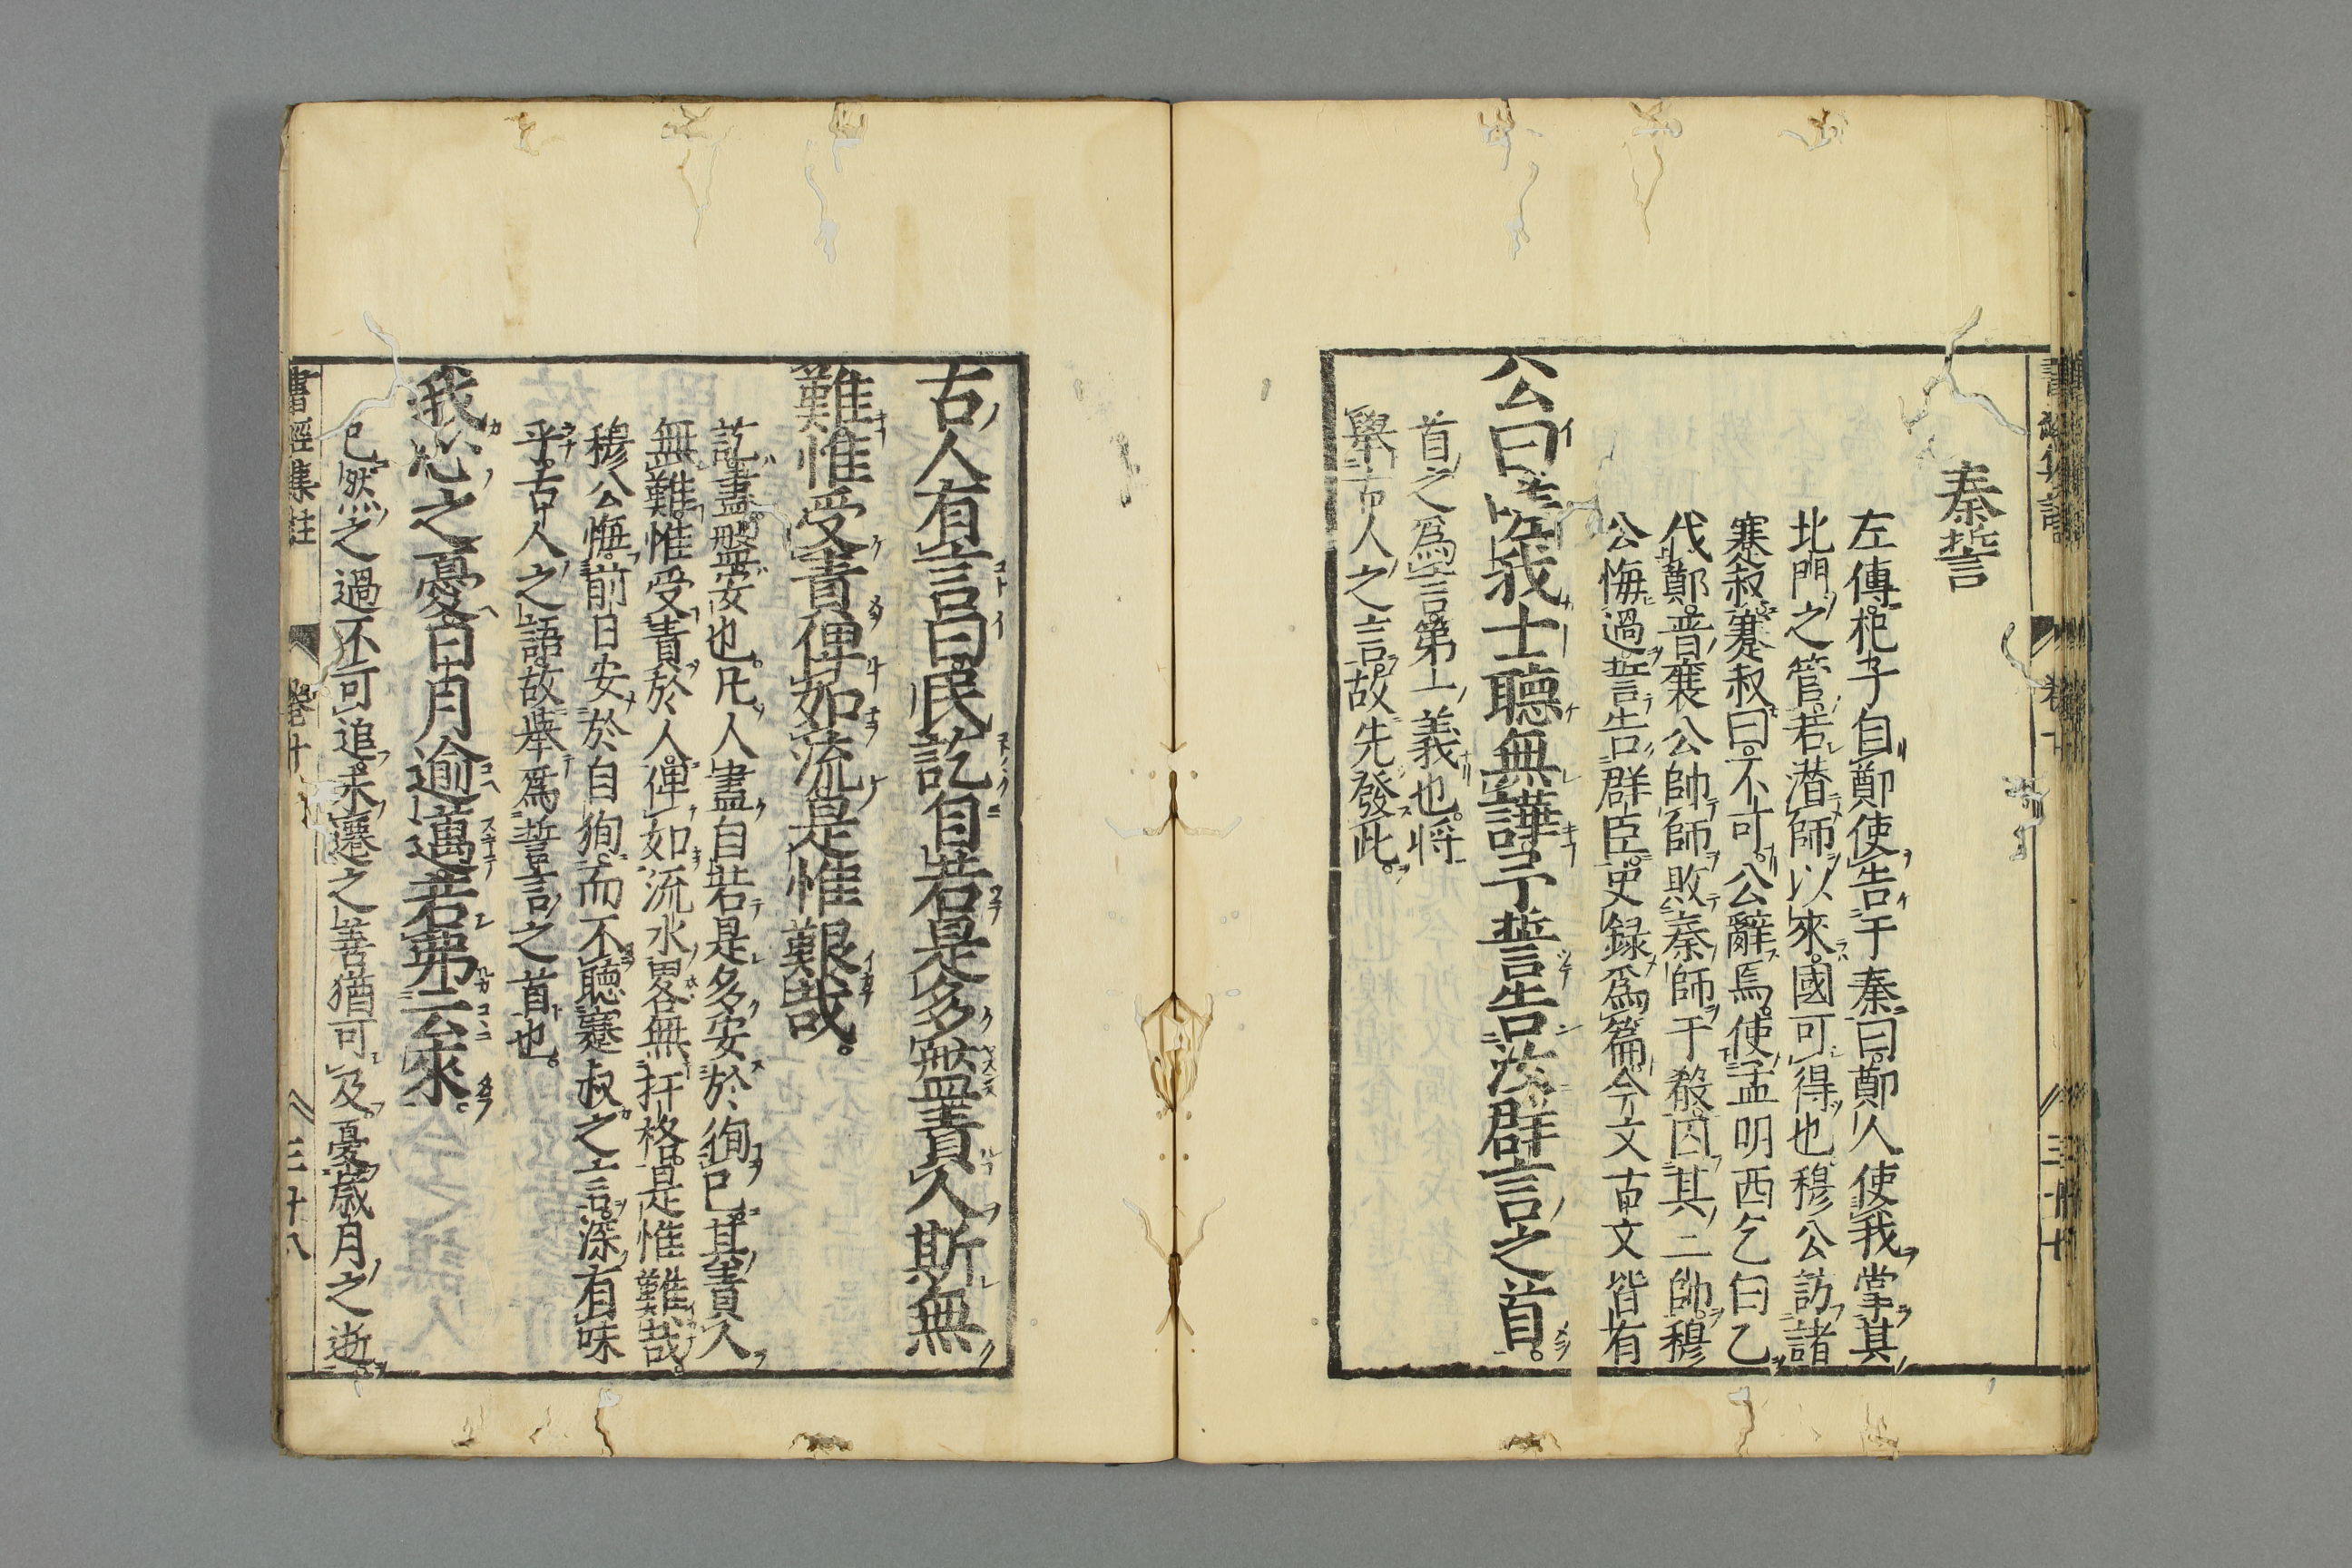 秦誓
左傳杞子自鄭使告于秦曰鄭人使我掌其
北門之管若潜師以來國可得也穆公訪諸
蹇叔蹇叔曰不可公辭焉使孟明西乞白乙
伐鄭晉襄公帥師敗秦師于殽囚其二帥穆
公悔過誓告群臣史録爲篇今文古文皆有
公曰嗟我士聽無譁予誓告汝群言之首
首之爲言第一義也將
舉古人之言故先發此
古人有言曰民訖自若是多盤責人斯無
難惟受責俾如流是惟艱哉
訖盡盤安也凡人盡自若是多安於徇己其責人
無難惟受責於人俾如流水畧無扞格是惟難哉
穆公悔前日安於自徇而不聽蹇叔之言深有味
乎古人之語故舉爲誓言之首也
我心之憂日月逾邁若弗云來
已然之過不可追未遷之善猶可及憂歳月之逝
書經集註 卷十 三十八